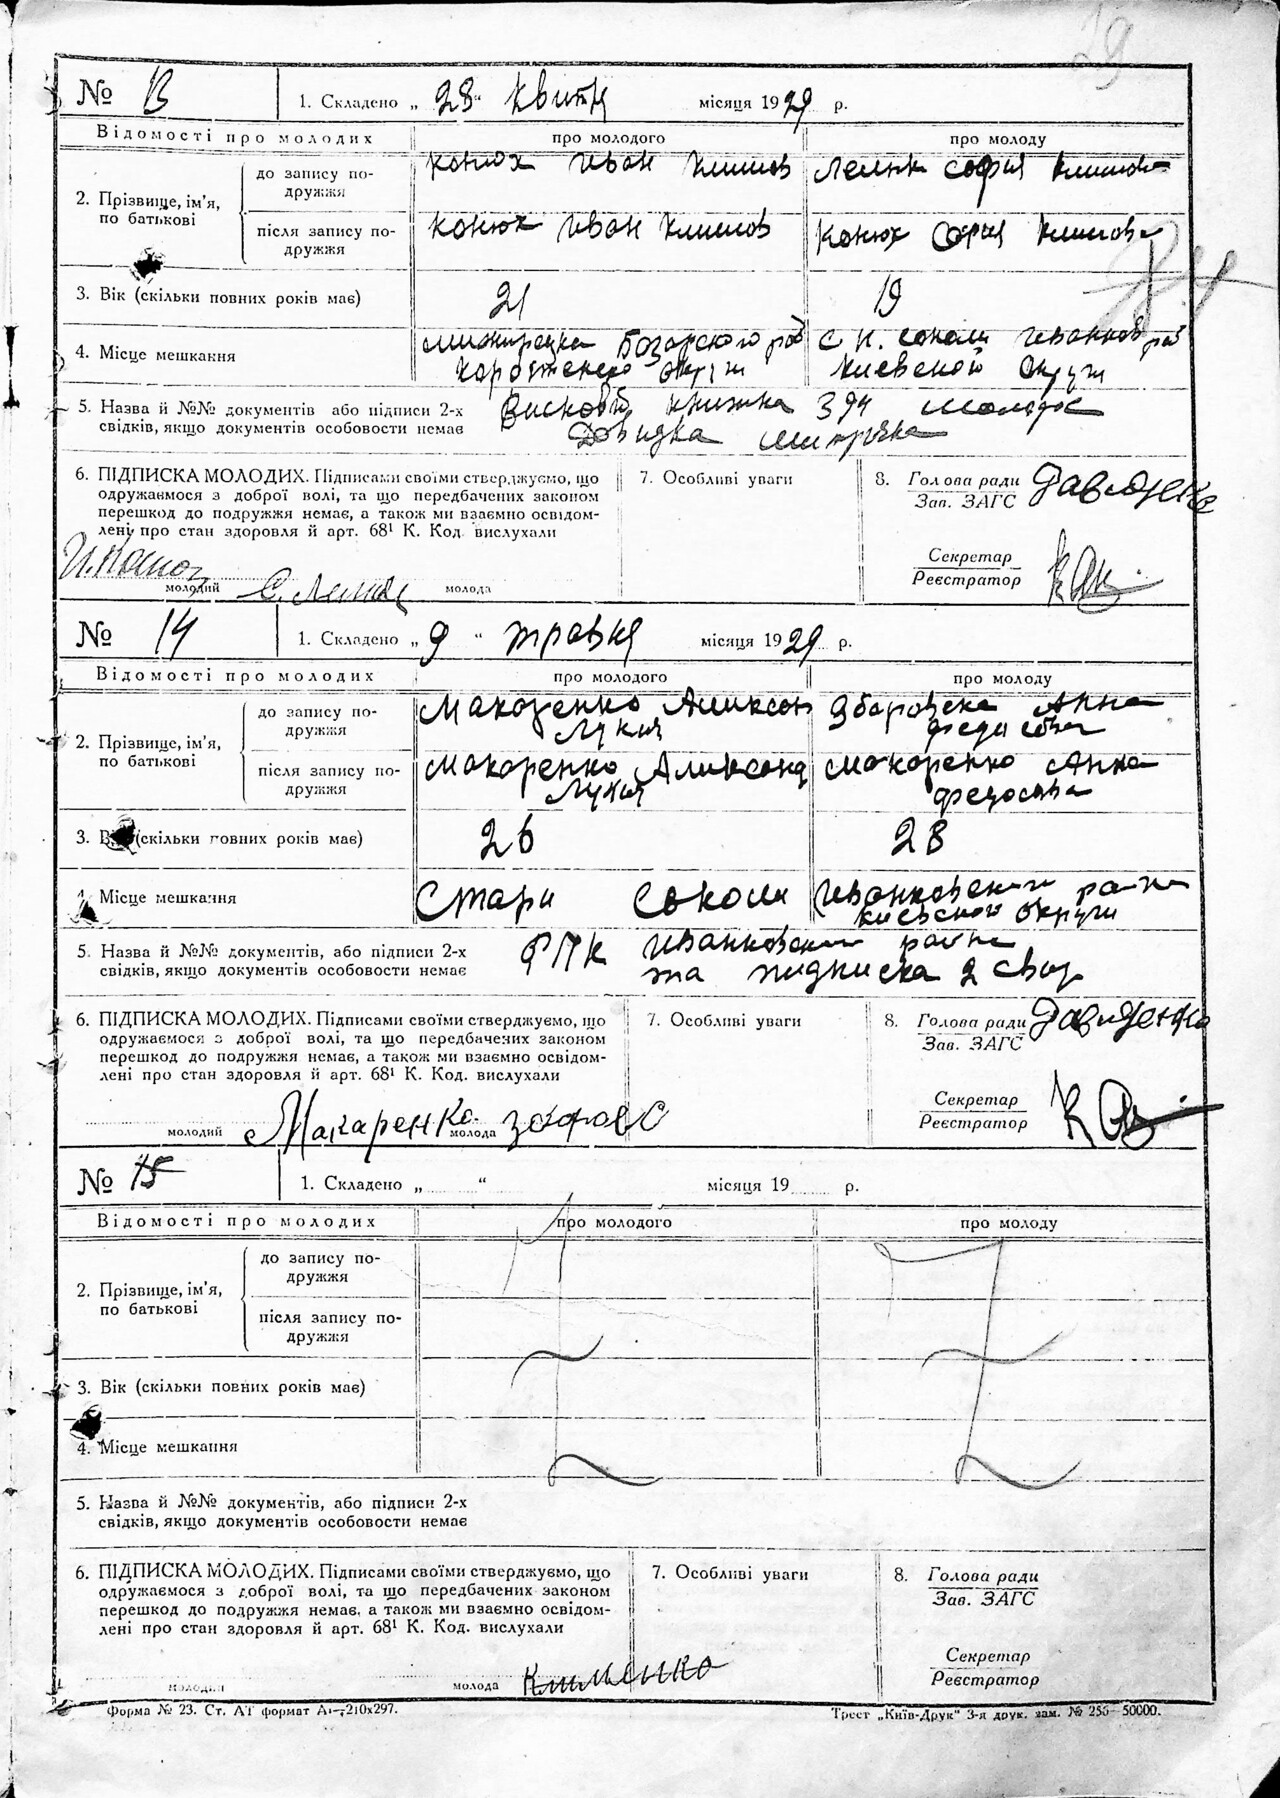 29
№ 13
1. Складено „ 28 “ квітня місяця 1929 р.
Відомості про молодих
про молодого
про молоду
2. Прізвище, ім’я, по батькові
до запису подружжя
Конюх Иван Климов
Софія Климова
після запису подружжя
Конюх Иван Климов
Конюх Софія Климова
3. Вік (скільки повних років має)
21
19
4. Місце мешкання
Базарского рай
С Н. Соколи Иванков рай
округи
Киевской округи
5. Назва й №№ документів або підписи 2-х
свідків, якщо документів особовости немає
книжка 394
Довидка
6. ПІДПИСКА МОЛОДИХ. Підписами своїми стверджуємо, що
одружаємося з доброї волі, та що передбачених законом
перешкод до подружжя немає, а також ми взаємно освідом-
лені про стан здоровля й арт. 68¹ К. Код. вислухали
молодий
молода
7. Особливі уваги
8. Голова ради
Зав. ЗАГС
Давиденко
Секретар
Реєстратор
№ 14
1. Складено „ 9 “ травня місяця 1929 р.
Відомості про молодих
про молодого
про молоду
2. Прізвище, ім’я, по батькові
до запису подружжя
Макаренко Аликсон
Лукич
Зборовска Анна
Федосовна
після запису подружжя
Макаренко Александ
Лукич
Макоренко Анна
Федосовна
3. Вік (скільки повних років має)
26
28
4. Місце мешкання
Стари Соколи
Иванковский район
Киевской округи
5. Назва й №№ документів, або підписи 2-х
свідків, якщо документів особовости немає
Иванковский район
та пидписка 2 свид
6. ПІДПИСКА МОЛОДИХ. Підписами своїми стверджуємо, що
одружаємося з доброї волі, та що передбачених законом
перешкод до подружжя немає, а також ми взаємно освідом-
лені про стан здоровля й арт. 68¹ К. Код. вислухали
молодий
Макаренко
молода
7. Особливі уваги
8. Голова ради
Зав. ЗАГС
Давиденко
Секретар
Реєстратор
№ 15
1. Складено „ “ місяця 19 р.
Відомості про молодих
про молодого
про молоду
2. Прізвище, ім’я, по батькові
до запису подружжя
після запису подружжя
3. Вік (скільки повних років має)
4. Місце мешкання
5. Назва й №№ документів, або підписи 2-х
свідків, якщо документів особовости немає
6. ПІДПИСКА МОЛОДИХ. Підписами своїми стверджуємо, що
одружаємося з доброї волі, та що передбачених законом
перешкод до подружжя немає, а також ми взаємно освідом-
лені про стан здоровля й арт. 68¹ К. Код. вислухали
молодий
молода
Клименко
7. Особливі уваги
8. Голова ради
Зав. ЗАГС
Секретар
Реєстратор
Форма № 23. Ст. АТ формат А₁—210x297.
Трест „Київ-Друк“ 3-я друк. зам. № 256—50000.